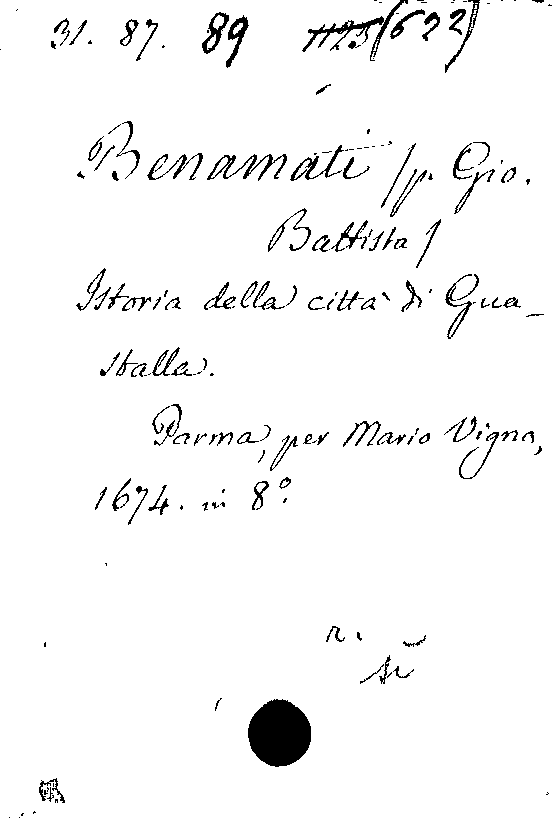 31. 87. 89 1125 (622)
Benamati /p. Gio.
Battista/
Istoria della città di Gua-
stalla.
Parma, per Mario Vigna,
1674. in 8°.
r.